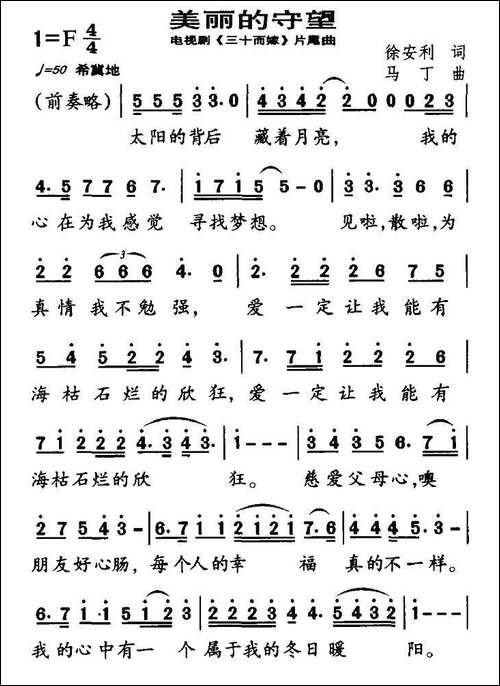 美丽的守望
电视剧《三十而嫁》片尾曲
1=F 4/4
♩=50 希冀地
徐安利 词
马丁 曲
(前奏略) | 5 5 5 3 3·0 | 4 3 4 2 2 0 0 0 2 3 |
太阳的背后 藏着月亮， 我的
4. 5 7 7 6 7. | 1 7 1 5 5 - 0 | 3 3. 3 6 6 |
心在为我感觉 寻找梦想。 见啦,散啦,为
2 2 6 6 6 4. 0 | 2. 2 2 2 6 7 5
真情我不勉强， 爱 一定让我能有
5 4 5 2 2 4 3. | 7. 7 1 2 2 2 6
海枯石烂的欣狂,爱一定让我能有
7 1 2 2 2 4. 3 4 3. | 1 - - - | 3 4 3 5 6. 7 1 |
海枯石烂的欣 狂。 慈爱父母心,噢
2 7 5 4 3 - | 6. 7 1 1 2 1 2 1 7. 6 | 4 4 4 5. 3 - |
朋友好心肠，每个人的幸 福 真的不一样。
6. 7 1·1 5 1 2 | 2 2 2 3 4. 2 5 4 3 2 | 1 - - - |
我的心中有一 个属于我的冬日暖 阳。